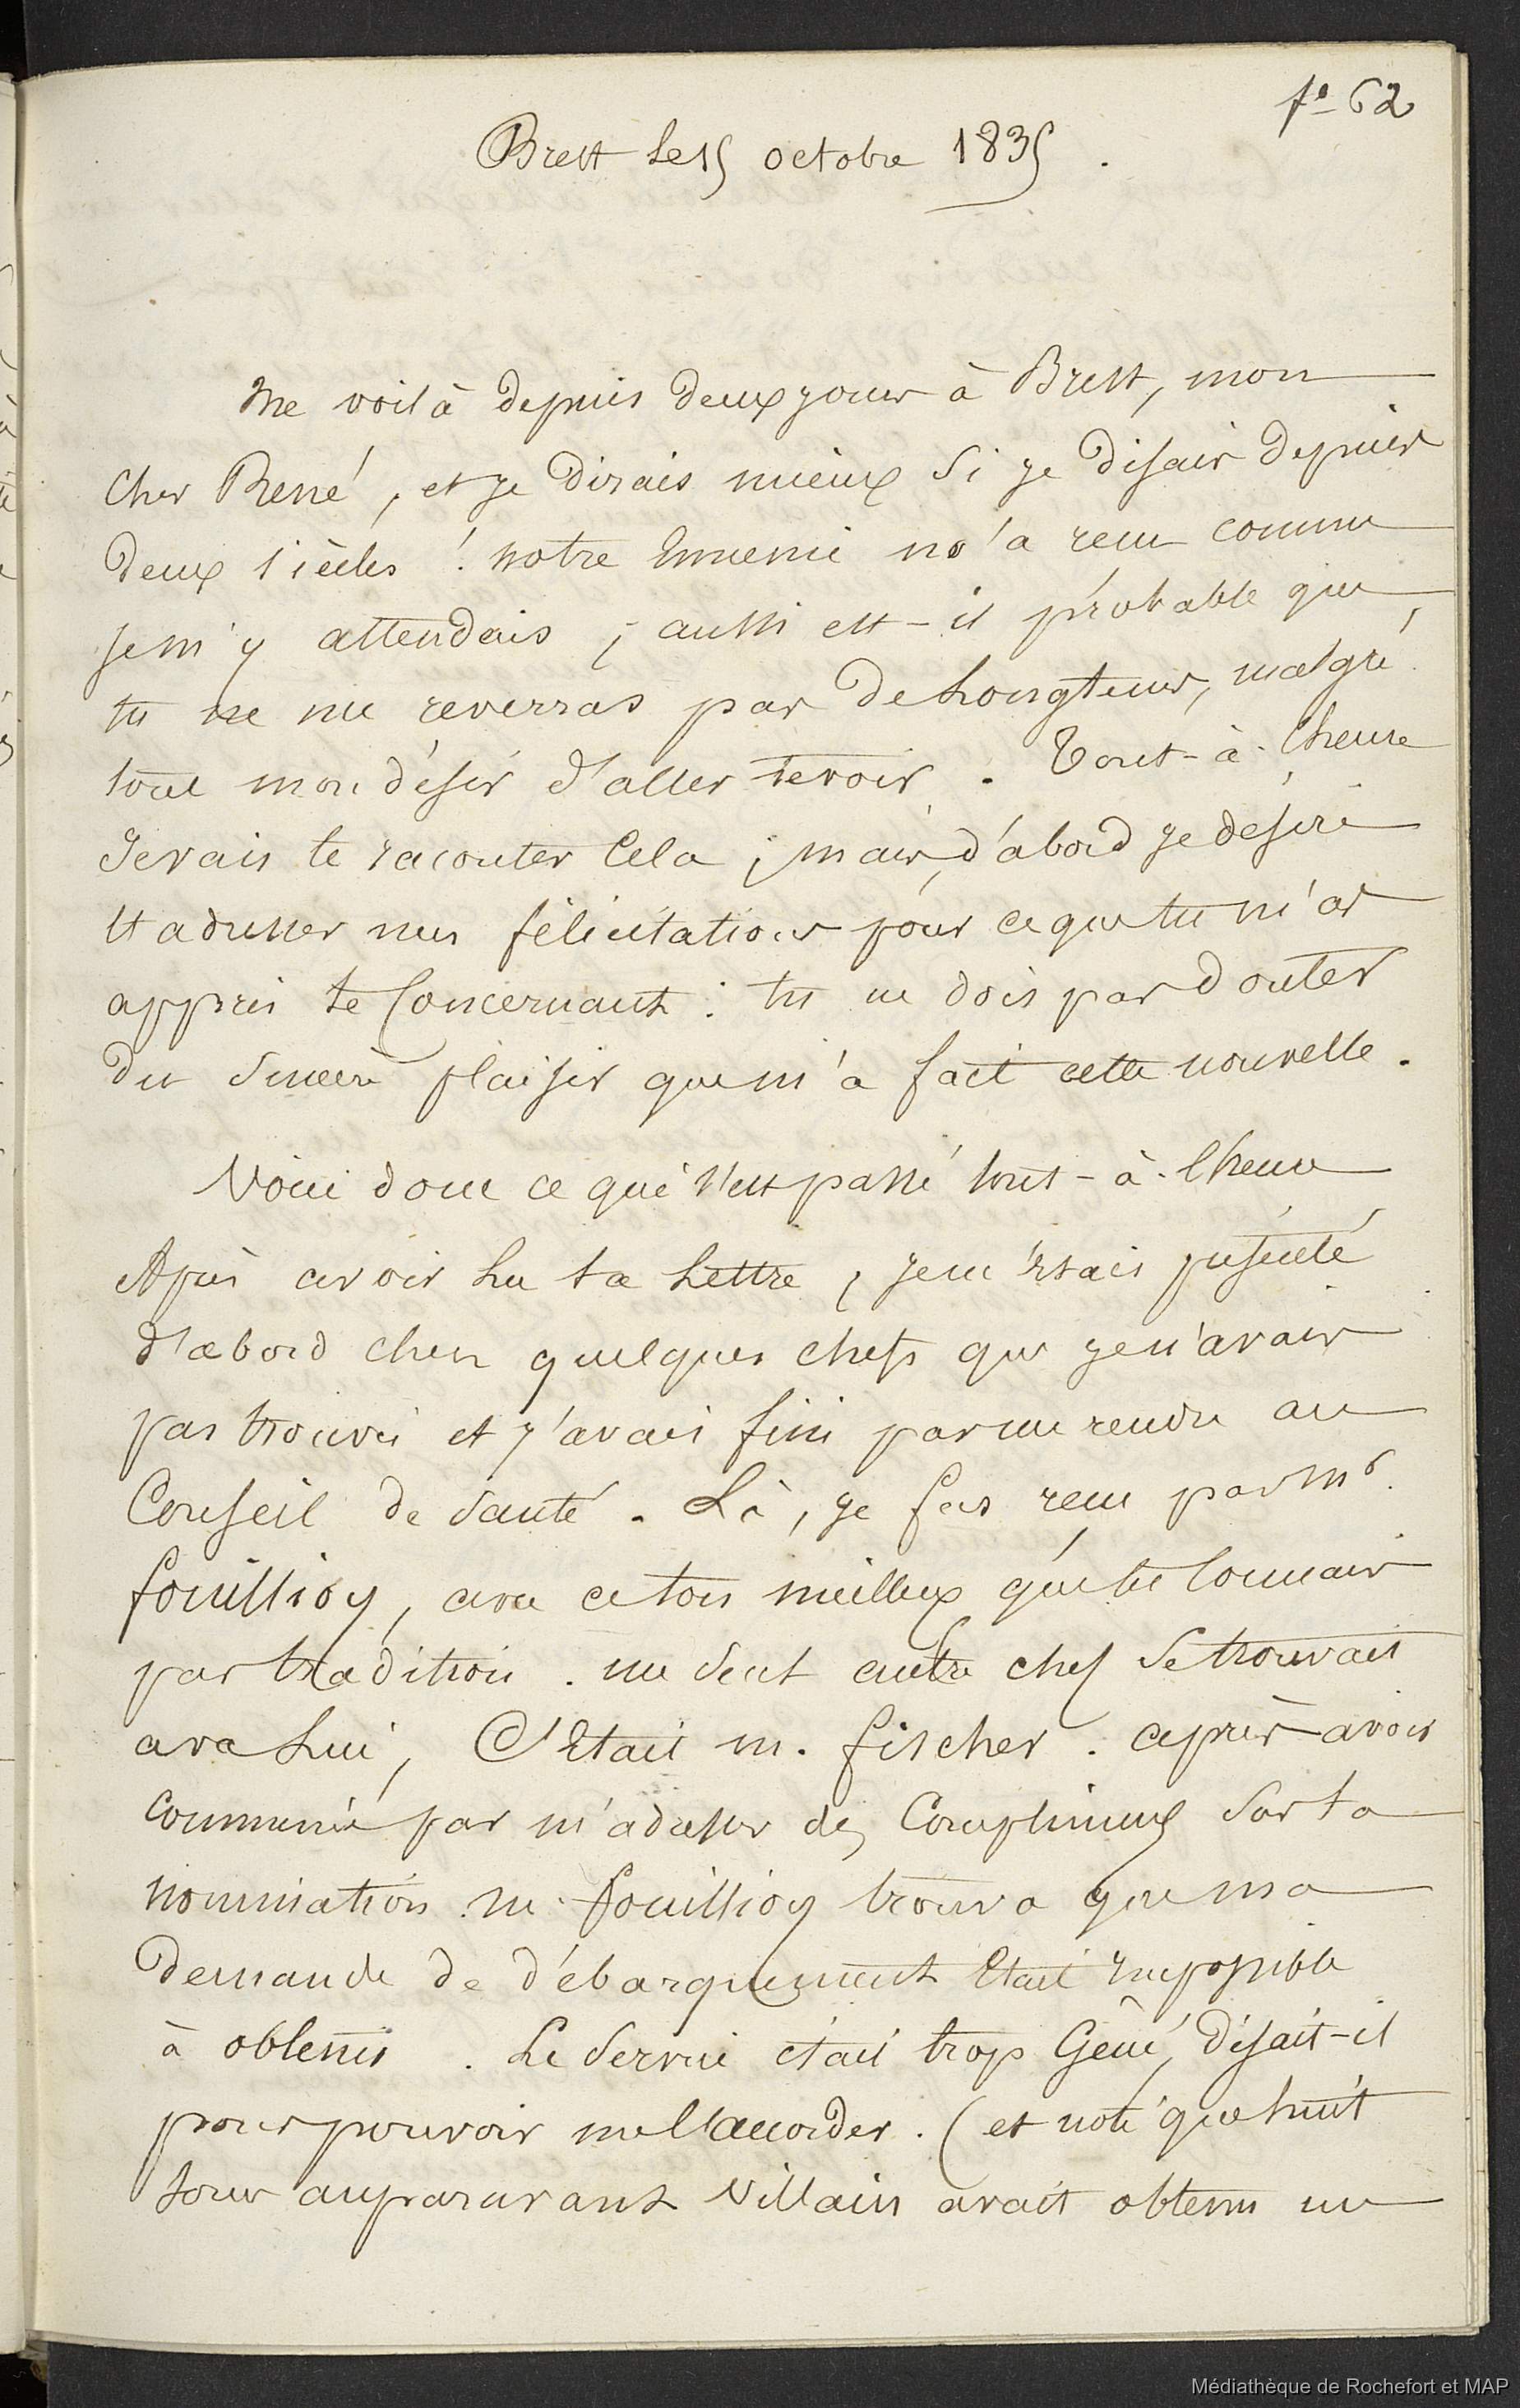 fo 62
Brest le 15 octobre 1835.
Me voilà depuis deux jours à Brest, mon
Cher René, et je dirais mieux si je disais depuis
deux siècles ! notre Ennemi m'a reçu comme
je m'y attendais ; aussi est-il probable que
tu ne me reverras pas de longtems, malgré
tout mon désir d'aller te voir. Tout-à-l'heure
Je vais te raconter cela ; mais, d'abord je desire
t'adresser mes félicitations pour ce que tu m'as
appris te concernant : tu ne dois pas douter
du sincère plaisir que m'a fait cette nouvelle.
Voici donc ce qui s'est passé tout-à-l'heure
Après avoir lu ta lettre, je m'étais présenté
d'abord chez quelques chefs que je n'avais
pas trouvés et j'avais fini par me rendre au
Conseil de santé. Là, je fus reçu par Mr.
fouillioy, avec ce ton mielleux que tu connais
par tradition. un seul autre chef se trouvait
avec lui, C'Etait m. fischer. après avoir
commencé par m'adresser des Complimens sur ta
nomination m. fouillioy trouva que ma
demande de débarquement Etait impossible
à obtenir. Le service était trop Gêné, disait-il
pour pouvoir me l'accorder. (et note que huit
jours auparavant Villain avait obtenu un
Médiathèque de Rochefort et MAP